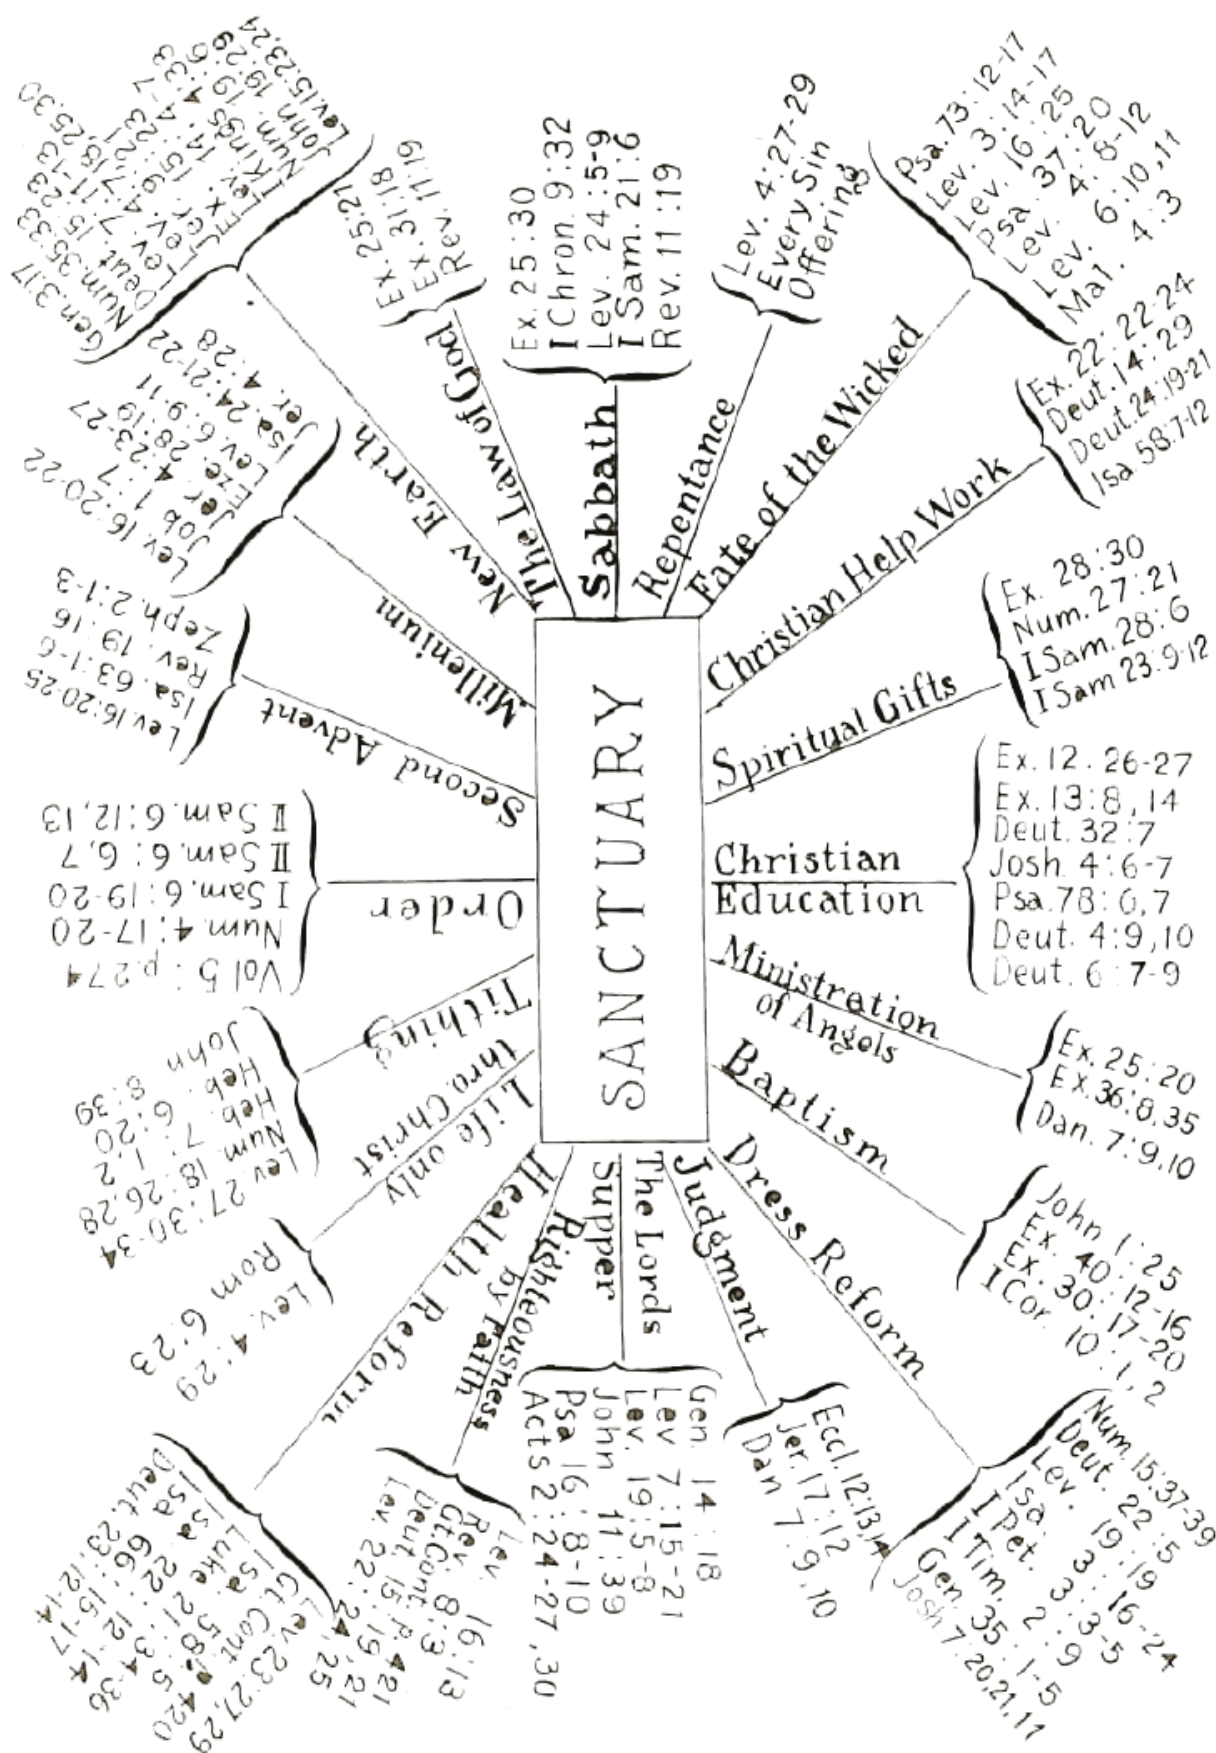 SANCTUARY
Sabbath
Ex. 25:30
I Chron. 9:32
Lev. 24:5-9
I Sam. 21:6
Rev. 11:19
Repentance
Lev. 4:27-29
Every Sin
Offering
Fate of the Wicked
Psa. 73:12-17
Lev. 3:14-17
Lev. 16:25
Psa. 37:20
Lev. 4:8-12
Lev. 6:10,11
Mal. 4:3
Christian Help Work
Ex. 22:22-24
Deut. 14:29
Deut. 24:19-21
Isa. 58:7-12
Spiritual Gifts
Ex. 28:30
Num. 27:21
I Sam. 28:6
I Sam 23:9-12
Christian
Education
Ex. 12.26-27
Ex. 13:8,14
Deut. 32:7
Josh. 4:6-7
Psa. 78:6,7
Deut. 4:9,10
Deut. 6:7-9
Ministration
of Angels
Ex. 25:20
Ex. 36:8,35
Dan. 7:9,10
Baptism
John 1:25
Ex. 40:12-16
Ex. 30:17-20
I Cor. 10:1,2
Dress Reform
Num. 15:37-39
Deut. 22:5
Lev. 19:19
Isa. 3:16-24
I Pet. 3:3-5
I Tim. 2:9
Gen. 35:1-5
Josh 7:20,21,11
Judgment
Eccl. 12:13,14
Jer. 17:12
Dan 7.9,10
The Lords
Supper
Gen. 14:18
Lev 7:15-21
Lev. 19:5-8
John 11:39
Psa 16:8-10
Acts 2:24-27,30
Righteousness
by Faith
Lev. 16:13
Rev. 8:3
Gt. Cont. p. 421
Deut. 15:19,21
Lev. 22:24,25
Health Reform
Lev. 23:27,29
Gt. Cont. p. 420
Isa. 58:5
Luke 21:34-36
Isa. 22:12-14
Isa 66:15-17
Deut. 23:12-14
Life only
thro. Christ
Lev. 4:29
Rom 6:23
Tithing
Lev. 27:30-34
Num. 18:26,28
Heb. 7:1,2
Heb. 6:20
John 8:39
Order
II Sam. 6:12,13
II Sam. 6:6,7
I Sam. 6:19-20
Num. 4:17-20
Vol 5: p. 274
Second Advent
Lev. 16:20-25
Isa. 63:1-6
Rev. 19:16
Zeph. 2:1-3
Millenium
Lev. 16:20-22
Job 1:7
Jer. 4:23-27
Eze. 28:19
Lev. 6.9-11
Isa. 24:21-22
Jer. 4:28
New Earth
Gen. 3:17
Num. 35:33
Deut. 15:23
Lev. 15:23,24
John 19:29
Num. 19:6
I Kings 4:33
The Law of God
Ex. 25:21
Ex. 31:18
Rev. 11:19